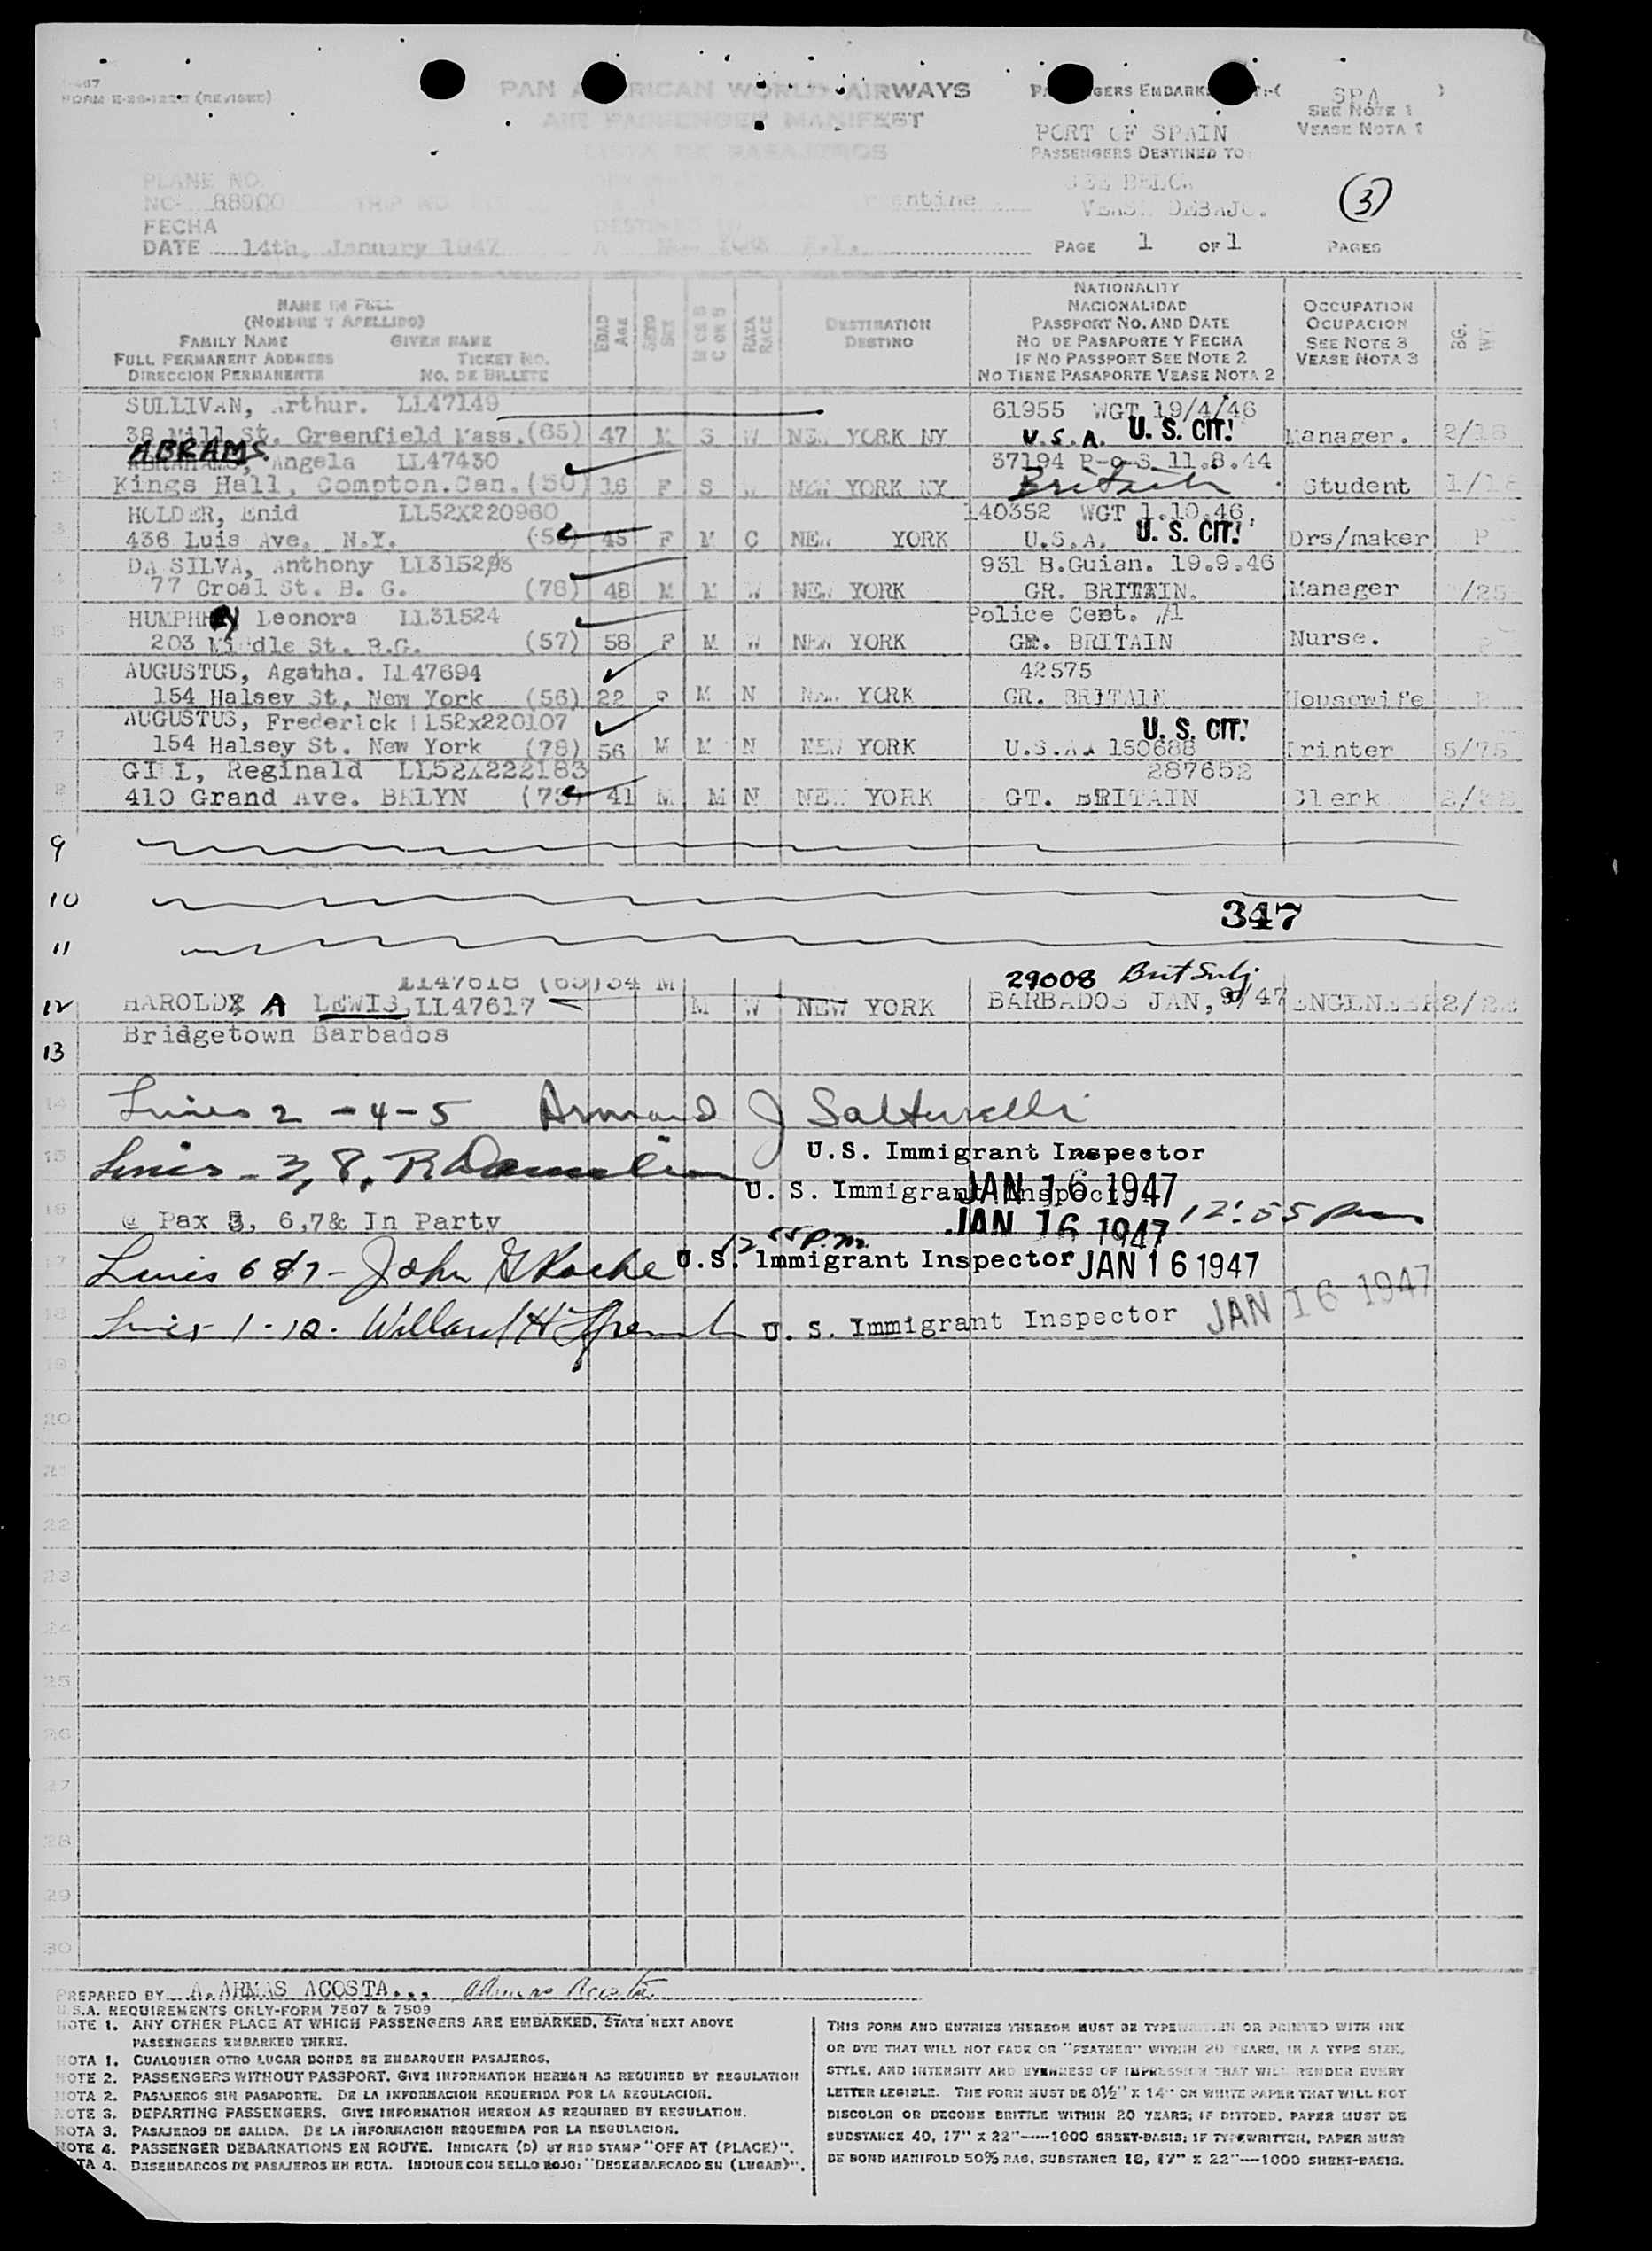 PAN AMERICAN WORLD AIRWAYS
AIR PASSENGER MANIFEST
LISTA DE PASAJEROS
(REVISED)
SPA
SEE NOTE 1
VEASE NOTA 1
PORT OF SPAIN
PASSENGERS DESTINED TO:
SEE BELOW
VEASE DEBAJO.
(3)
PLANE NO.
NC- 88900
FECHA
DATE 14th, January 1947
PAGE 1 OF 1 PAGES
NAME IN FULL
(NOMBRE Y APELLIDO)
FAMILY NAME GIVEN NAME
FULL PERMANENT ADDRESS TICKET NO.
DIRECCION PERMANENTE NO. DE BILLETE
EDAD AGE
SEXO SEX
M OR S C OR S
RAZA RACE
DESTINATION
DESTINO
NATIONALITY
NACIONALIDAD
PASSPORT NO. AND DATE
NO DE PASAPORTE Y FECHA
IF NO PASSPORT SEE NOTE 2
NO TIENE PASAPORTE VEASE NOTA 2
OCCUPATION
OCUPACION
SEE NOTE 3
VEASE NOTA 3
BG. WT.
SULLIVAN, Arthur. LL47149 61955 WGT 19/4/46
38 Mill St. Greenfield Mass.(65) 47 M S W NEW YORK NY U.S.A. U. S. CIT. Manager. 2/18
ABRAMS
Angela LL47430 37194 P-o-S 11.8.44
Kings Hall, Compton.Can.(50) 16 F S W NEW YORK NY British Student
HOLDER, Enid LL52X220960 140352 WGT 1.10.46.
436 Luis Ave. N.Y. 45 F M C NEW YORK U.S.A. U. S. CIT. Drs/maker P
DA SILVA, Anthony LL315293 931 B.Guian. 19.9.46
77 Croal St. B. G. (78) 48 M M W NEW YORK GR. BRITTAIN. Manager /25
HUMPHREY Leonora LL31524 Police Cert. #1
203 Middle St. B.G. (57) 58 F M W NEW YORK GR. BRITAIN Nurse.
AUGUSTUS, Agatha. LL47694 42575
154 Halsey St, New York (56) 22 F M N NEW YORK GR. BRITAIN Housewife
AUGUSTUS, Frederick LL52x220107 U. S. CIT.
154 Halsey St. New York (78) 56 M M N NEW YORK U.S.A. 150688 Printer 5/75
Reginald LL52X222183 287652
410 Grand Ave. BKLYN (73) 41 M M N NEW YORK GT. BRITAIN Clerk
9
10
347
11
LL47618 (65)34 M 29008 Brit Subj
12 HAROLD A LEWIS, LL47617 M W NEW YORK BARBADOS JAN, 9/47 ENGINEER 2/22
Bridgetown Barbados
13
14 Lines 2 - 4 - 5 Armand J
U.S. Immigrant Inspector
15 Lines - 3, 8,
U. S. Immigrant Inspector JAN 16 1947
16 @ Pax 3, 6,7& In Party JAN 16 1947 12:55 pm
12 55 P.m.
17 Lines 6 & 7 - John U.S. Immigrant Inspector JAN 16 1947
18 Lines 1 - 12. Willard H U. S. Immigrant Inspector JAN 16 1947
19
20
21
22
23
24
25
26
27
28
29
30
PREPARED BY A. ARMAS ACOSTA... Armas Acosta
U.S.A. REQUIREMENTS ONLY-FORM 7507 & 7509
NOTE 1. ANY OTHER PLACE AT WHICH PASSENGERS ARE EMBARKED, STATE NEXT ABOVE
PASSENGERS EMBARKED THERE.
NOTA 1. CUALQUIER OTRO LUGAR DONDE SE EMBARQUEN PASAJEROS.
NOTE 2. PASSENGERS WITHOUT PASSPORT. GIVE INFORMATION HEREON AS REQUIRED BY REGULATION
NOTA 2. PASAJEROS SIN PASAPORTE. DE LA INFORMACION REQUERIDA POR LA REGULACION.
NOTE 3. DEPARTING PASSENGERS. GIVE INFORMATION HEREON AS REQUIRED BY REGULATION.
NOTA 3. PASAJEROS DE SALIDA. DE LA INFORMACION REQUERIDA POR LA REGULACION.
NOTE 4. PASSENGER DEBARKATIONS EN ROUTE. INDICATE (D) BY RED STAMP "OFF AT (PLACE)".
NOTA 4. DESEMBARCOS DE PASAJEROS EN RUTA. INDIQUE CON SELLO ROJO: "DESEMBARCADO EN (LUGAR)".
THIS FORM AND ENTRIES THEREON MUST BE TYPEWRITTEN OR PRINTED WITH INK
OR DYE THAT WILL NOT FADE OR "FEATHER" WITHIN 20 YEARS, IN A TYPE SIZE,
STYLE, AND INTENSITY AND EVENNESS OF IMPRESSION THAT WILL RENDER EVERY
LETTER LEGIBLE. THE FORM MUST BE 8½" X 14" ON WHITE PAPER THAT WILL NOT
DISCOLOR OR BECOME BRITTLE WITHIN 20 YEARS; IF DITTOED, PAPER MUST BE
SUBSTANCE 40, 17" X 22"----1000 SHEET-BASIS; IF TYPEWRITTEN, PAPER MUST
BE BOND MANIFOLD 50% RAG, SUBSTANCE 18, 17" X 22"---1000 SHEET-BASIS.